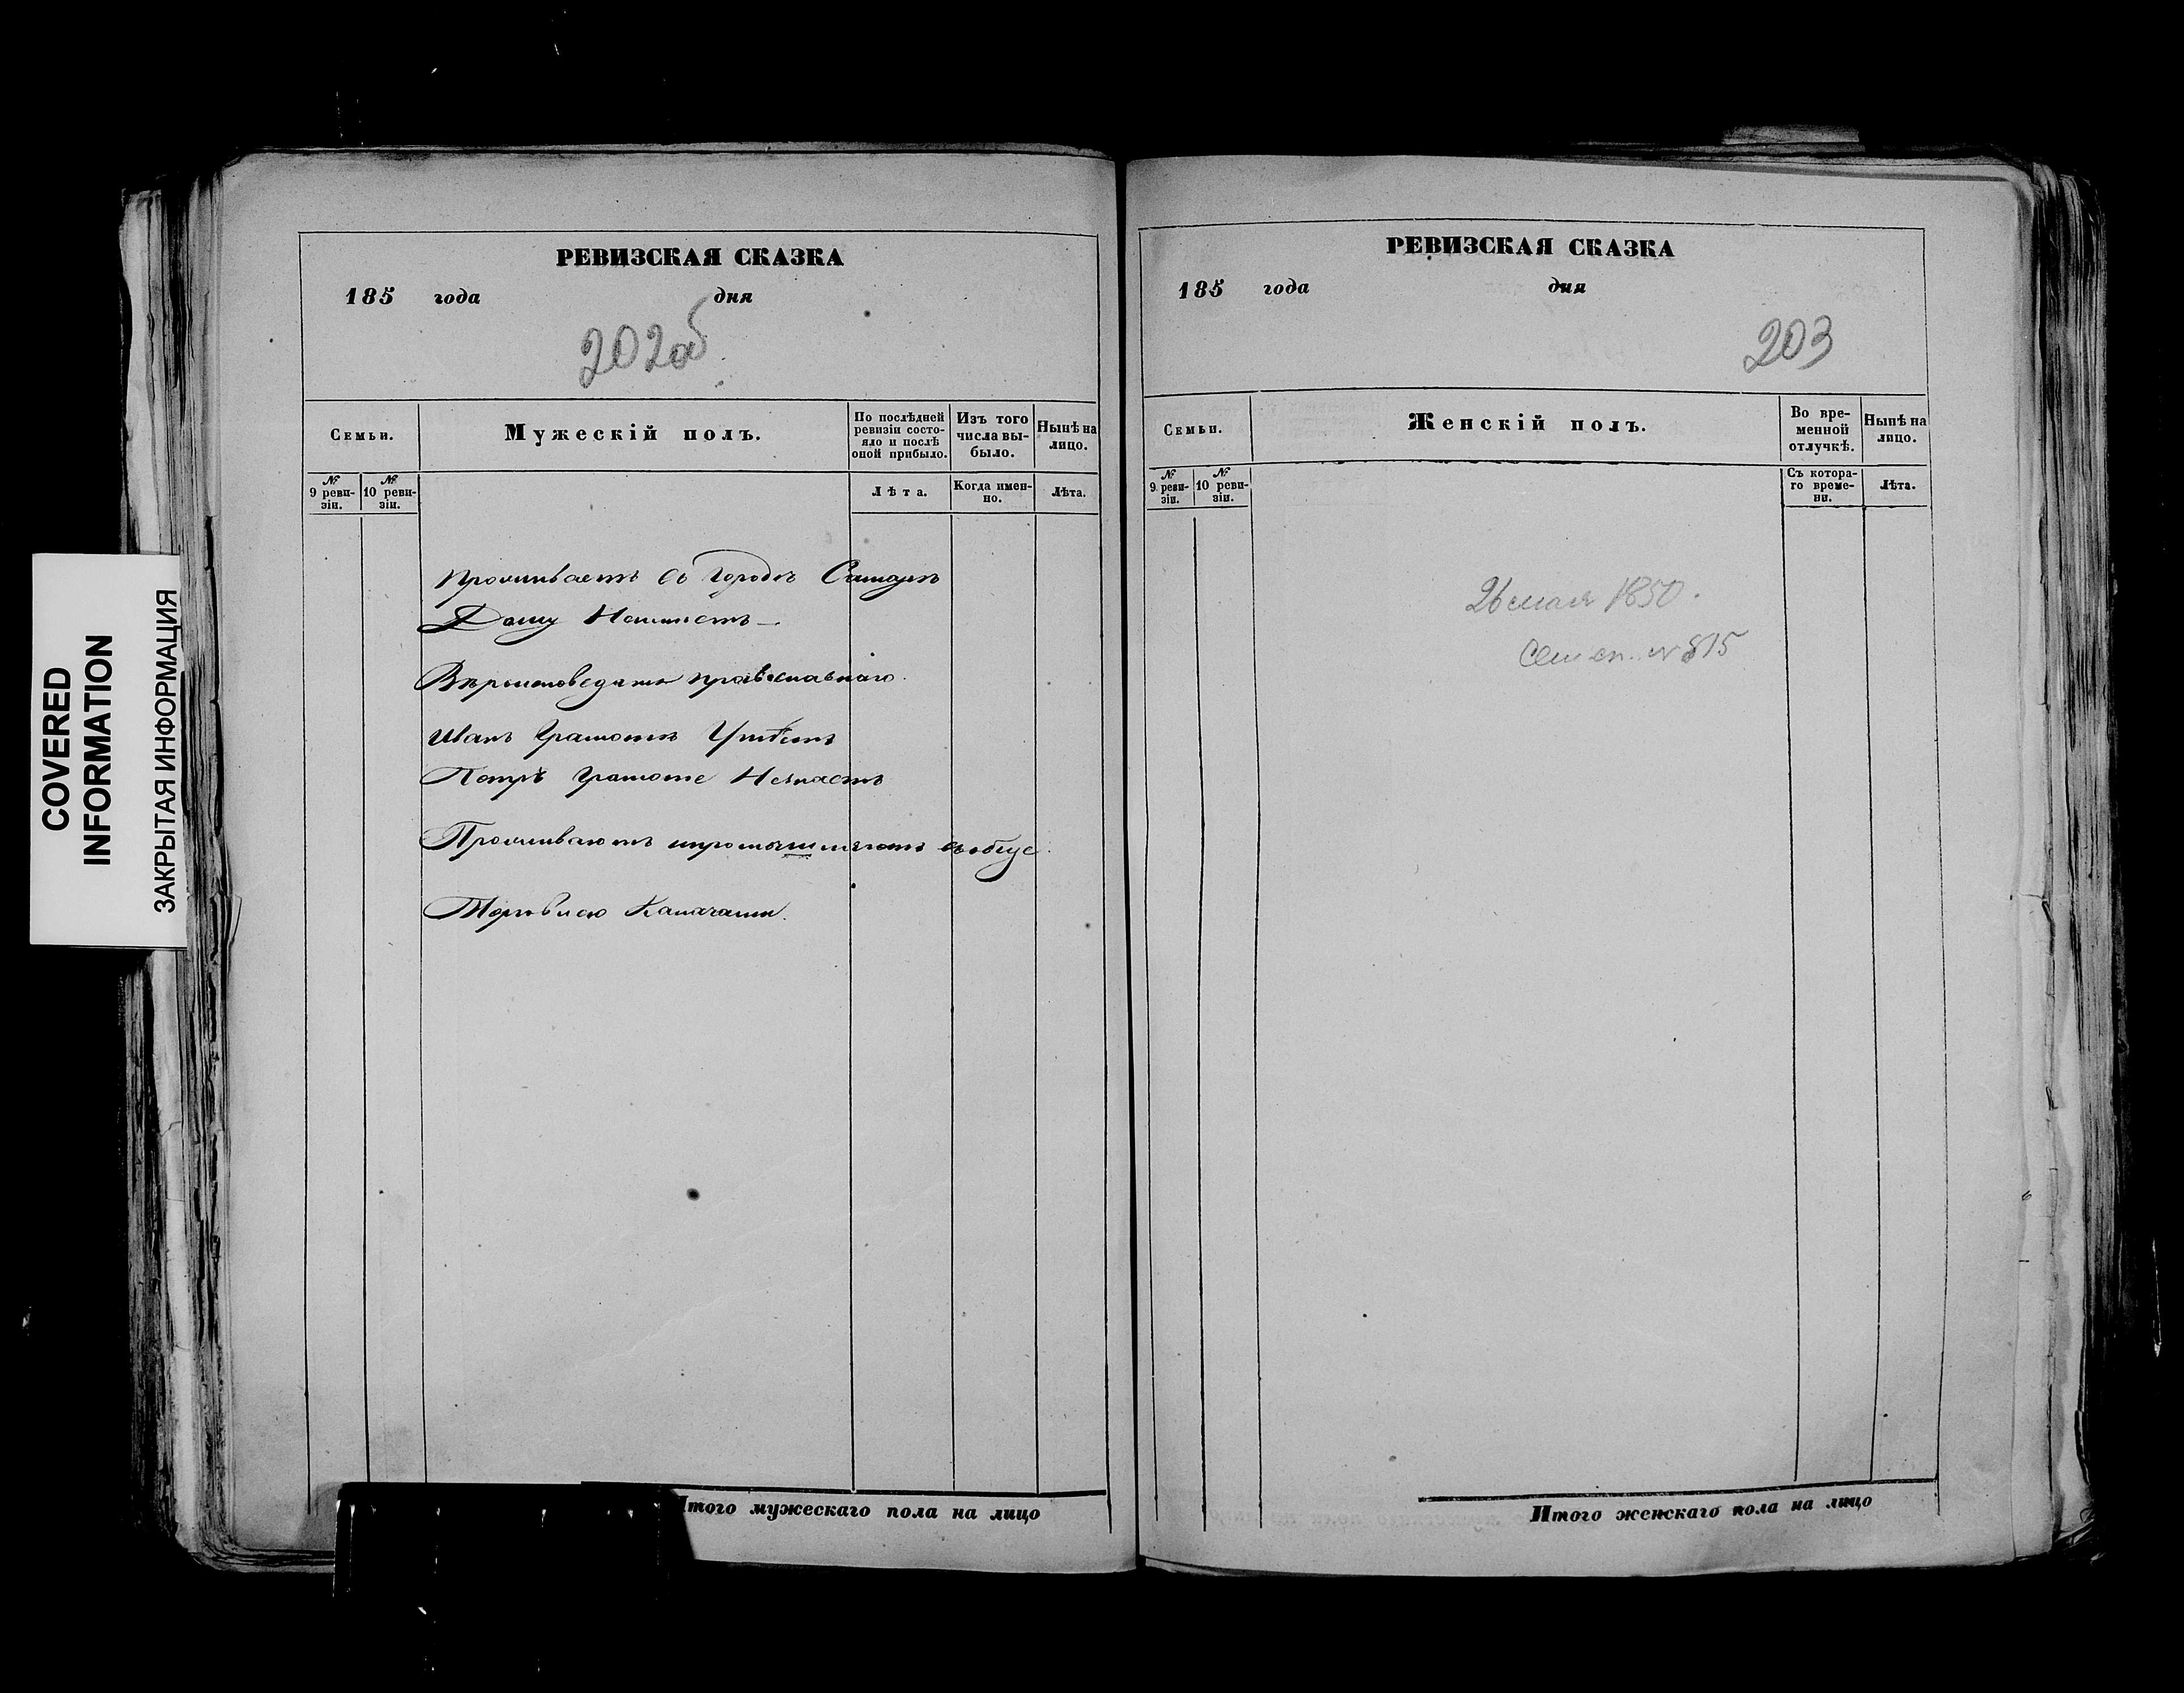 COVERED
INFORMATION
ЗАКРЫТАЯ ИНФОРМАЦИЯ
РЕВИЗСКАЯ СКАЗКА
185 года дня
202об
Семьи.
Мужескій полъ.
По послѣдней ревизіи состояло и послѣ оной прибыло.
Изъ того числа выбыло.
Нынѣ на лицо.
№ 9 ревизіи.
№ 10 ревизіи.
Лѣта.
Когда именно.
Лѣта.
Проживаетъ въ городѣ
Дому Неимѣетъ
Вѣроисповеданія православнаго
Иванъ Грамотѣ Умѣетъ
Петръ Грамоте Незнаетъ
Проживаютъ ипромышляютъ вобще
Торговлею Калачами.
Итого мужескаго пола на лицо
РЕВИЗСКАЯ СКАЗКА
185 года дня
203
Семьи.
Женскій полъ.
Во временной отлучкѣ.
Нынѣ на лицо.
№ 9 ревизіи.
№ 10 ревизіи.
Съ котораго времени.
Лѣта.
26 мая 1850.
№ 815
Итого женскаго пола на лицо